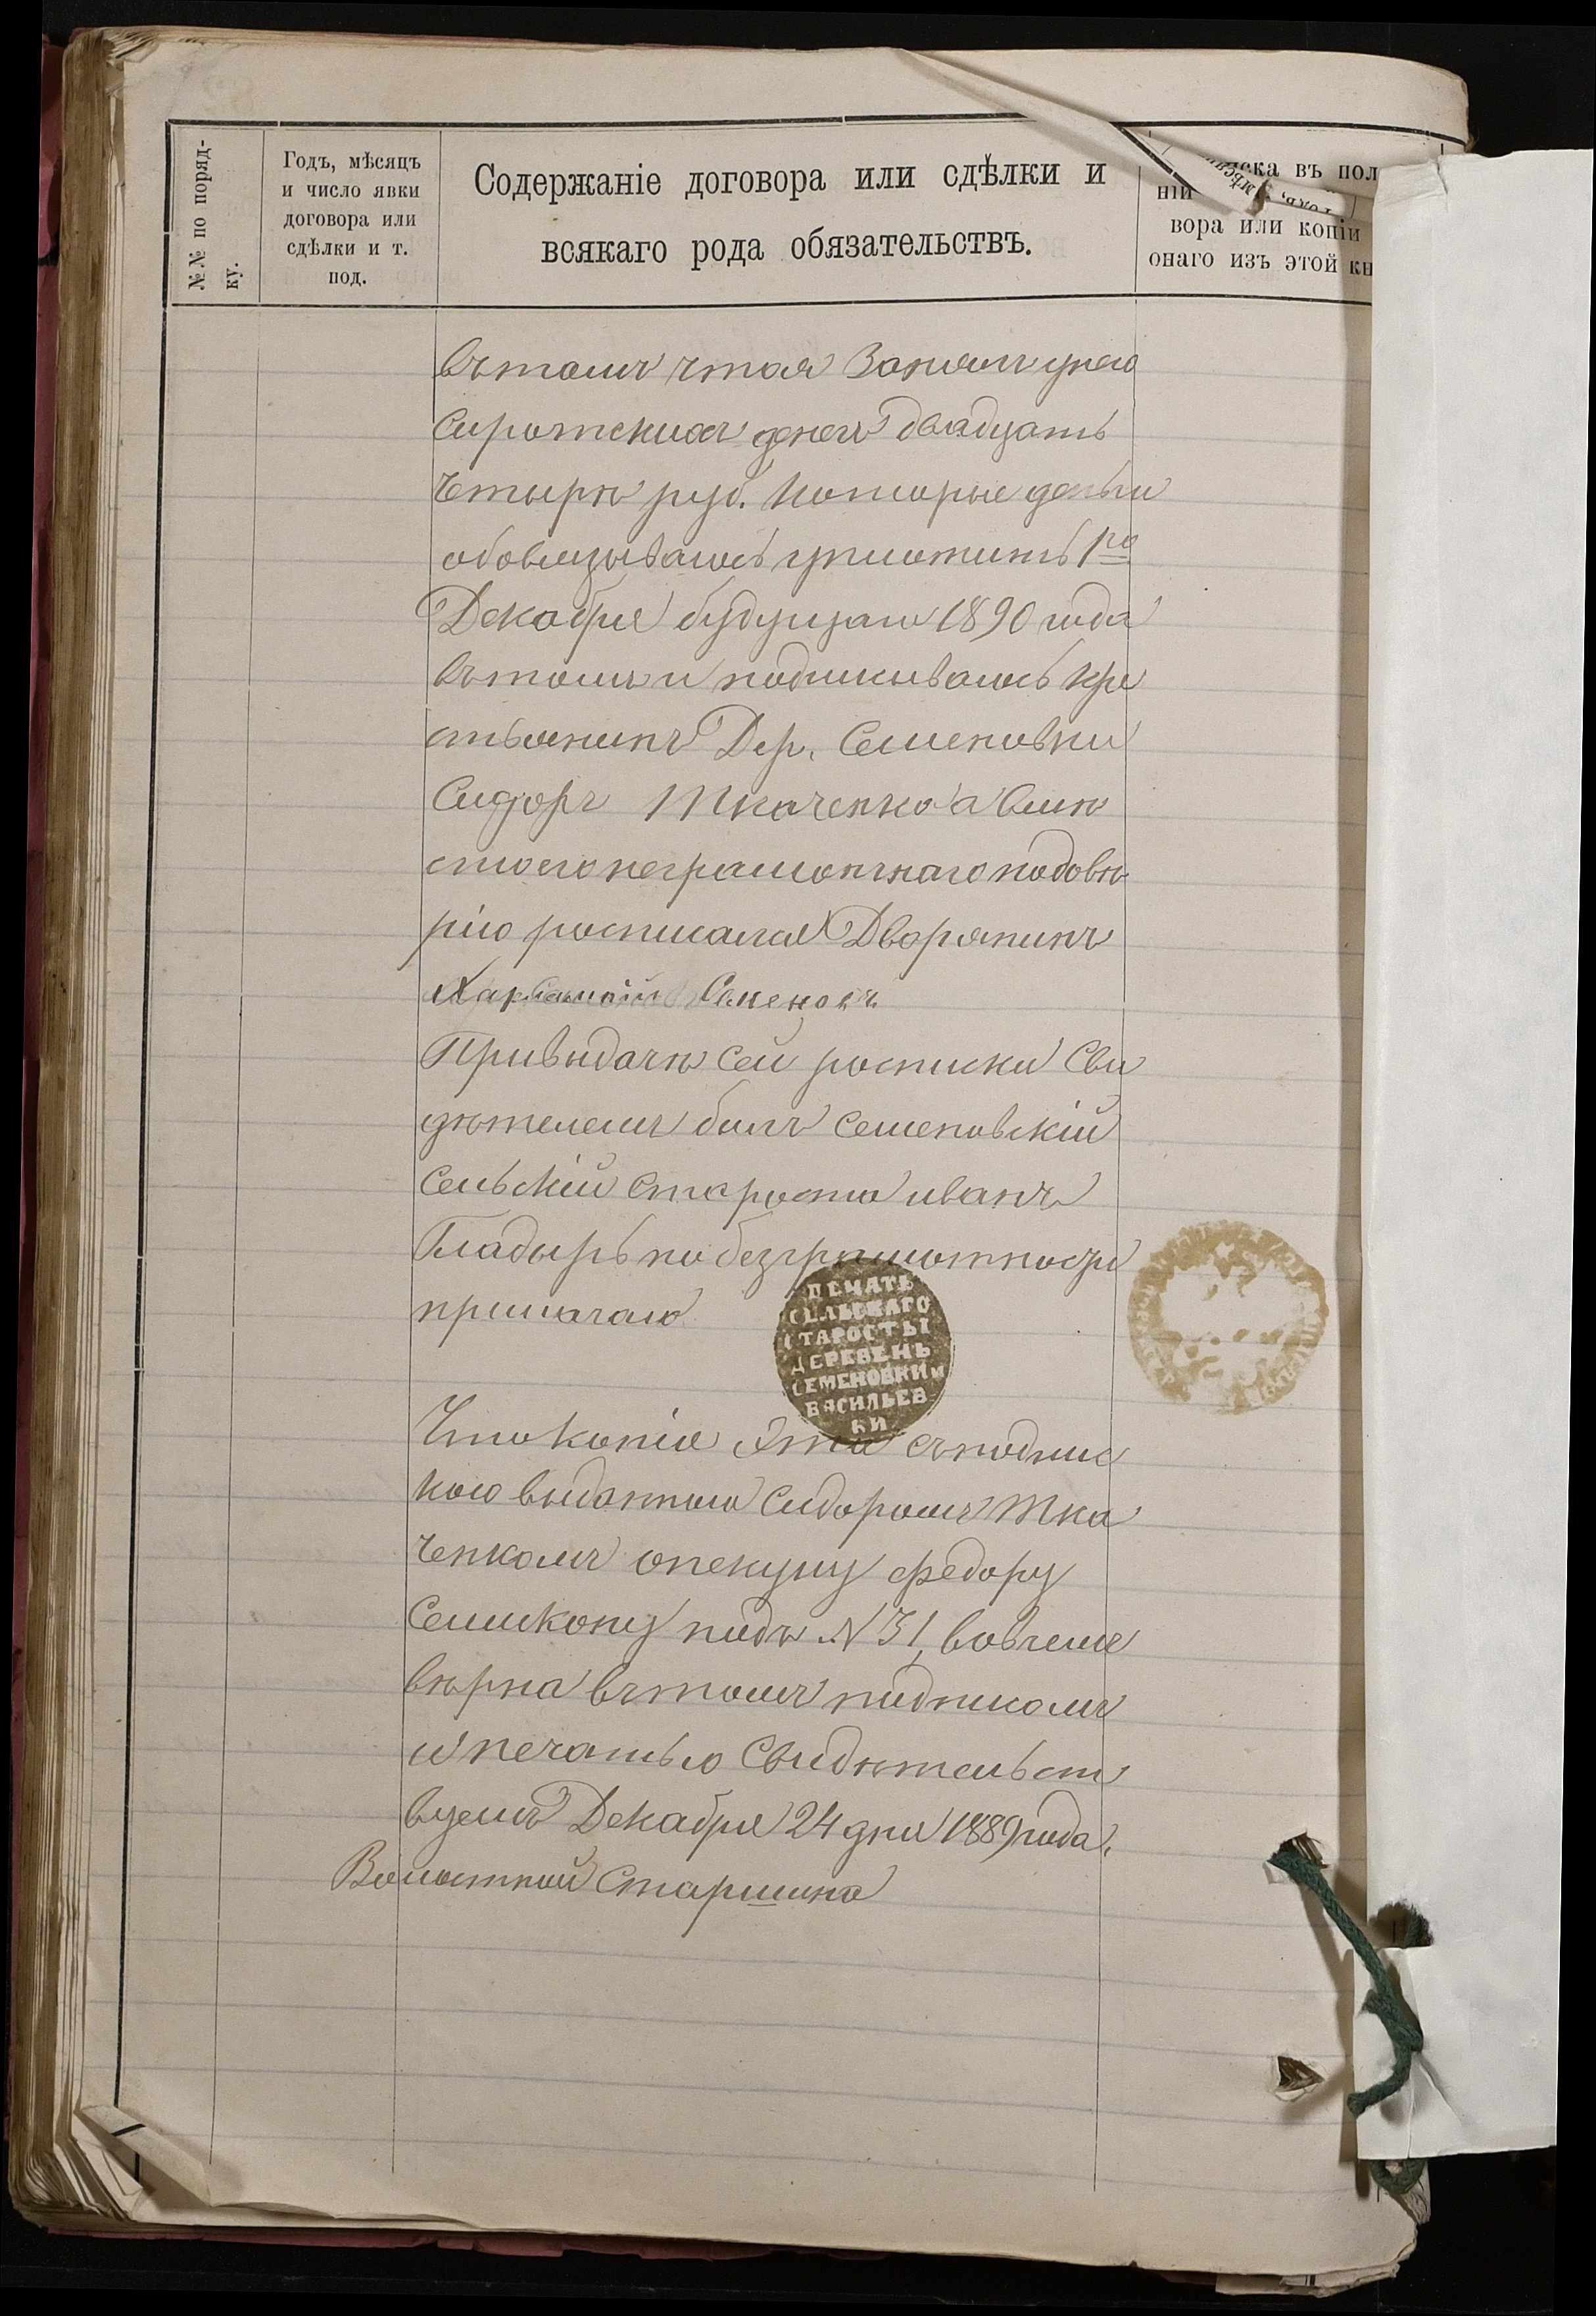 №№ по поряд-
ку.
Годъ, мѣсяцъ
и число явки
договора или
сдѣлки и т.
под.
Содержаніе договора или сдѣлки и
всякаго рода обязательствъ.
ска въ пол
ніи
вора или копіи
онаго изъ этой кн
въ томъ что я Занялъ унего
Сиротскихъ денегъ двадцать
четыри руб. Которые деньги
обовязываюсь уплотить 1го
Декабря будущаго 1890 года
въ томъ и подписываюсь Кре
стьянинъ Дер. Семеновки
Сидоръ Ткаченко а вмѣ
сто его неграмотнаго по довѣ
рію росписался Дворянинъ
Семеновъ
При выдачѣ Сей росписки Сви
дѣтелемъ билъ Семеновскій
Сельскій Староста иванъ
Гладырь по безграмотности
прилагаю
ПЕЧАТЬ
СЕЛЬСКАГО
СТАРОСТЫ
ДЕРЕВЕНЬ
СЕМЕНОВКИ и
ВАСИЛЬЕВ-
КИ
Что Копія Эта съ подпис
кою выданною Сидоромъ Тка
ченкомъ опекуну Федору
Семикопу подъ N 31, во всемъ
вѣрна въ томъ подписомъ
и печатью Свидѣтельст
вуемъ Декабря 24 дня 1889 года.
Волостной Старшина